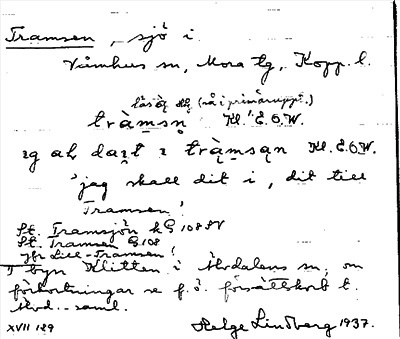 Tramsen, sjö i
Våmhus sn, Mora tg, Kopp. l.
läsöq (så i primäruppt.)
tràmsn̥ Kl. E.O.W.
ɪg dart ɪ tràmsan Kl. E.O.W.
'jag skall dit i, dit till
Tramsen'
St. Tramsjön kG 108 SV
St. Tramsen G 108
jfr Lill-Tramsen!
i byn Klitten i Älvdalens sn; om
förkortningar se f.ö. försättskort t.
Älvd.-saml.
XVII 129 Helge Lindberg 1937.